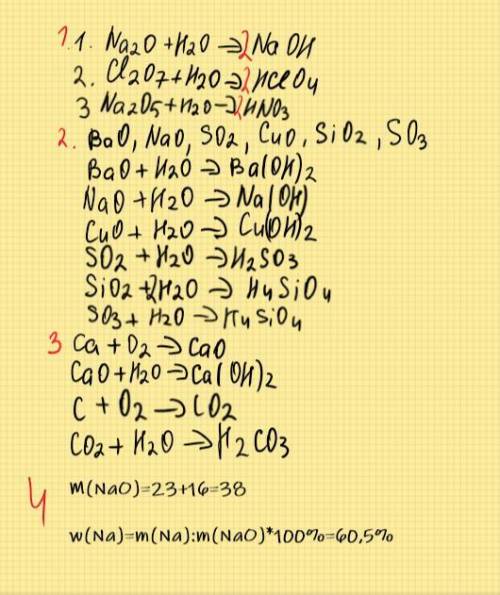 1. 1. Na2O + H2O → 2NaOH
2. Cl2O7 + H2O → 2HClO4
3 Na2O5 + H2O → 2HNO3
2. BaO, NaO, SO2, CuO, SiO2, SO3
BaO + H2O → Ba(OH)2
NaO + H2O → Na(OH)
CuO + H2O → Cu(OH)2
SO2 + H2O → H2SO3
SiO2 + 2H2O → H4SiO4
SO3 + H2O → H4SiO4
3 Ca + O2 → CaO
CaO + H2O → Ca(OH)2
C + O2 → CO2
CO2 + H2O → H2CO3
4 M(NaO)=23+16=38
w(Na)=m(Na):m(NaO)*100%=60,5%